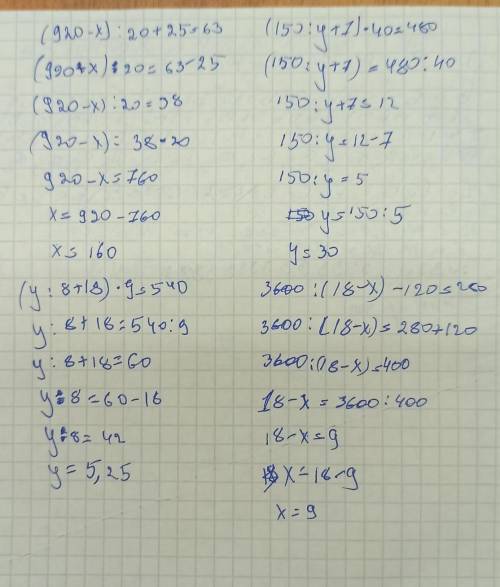 (920-x):20+25=63
(920-x):20=63-25
(920-x):20=38
(920-x)=38·20
920-x=760
x=920-760
x=160
(150:y+7)·40=480
(150:y+7)=480:40
150:y+7=12
150:y=12-7
150:y=5
y=150:5
y=30
(y:8+18)·9=540
y:8+18=540:9
y:8+18=60
y:8=60-18
y:8=42
y=5,25
3600:(18-x)-120=280
3600:(18-x)=280+120
3600:(18-x)=400
18-x=3600:400
18-x=9
x=18-9
x=9